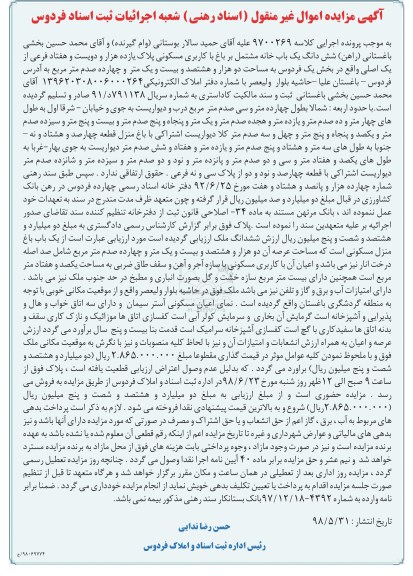 آگهی مزایده اموال غیر منقول (اسناد رهنی) شعبه اجرائیات ثبت اسناد فردوس
به موجب پرونده اجرایی کلاسه ۹۷۰۰۲۶۹ علیه آقای حمید سالار بوستانی (وام گیرنده) و آقای محمد حسین بخشی
باغستانی (راهن) شش دانگ یک باب خانه مشتمل بر باغ با کاربری مسکونی پلاک یازده هزار و دویست و هفتاد فرعی از
یک اصلی واقع در بخش یک فردوس به مساحت دو هزار و هشتصد و بیست و یک متر و چهارده صدم متر مربع به آدرس
فردوس – باغستان علیا – حاشیه بلوار ولیعصر با شماره دفتر املاک الکترونیکی ۱۳۹۶۲۰۳۰۸۰۰۶۰۰۰۲۶۴ آقای
محمد حسین بخشی باغستانی ثبت و سند مالکیت کاداستری به شماره سریال ۷۹۱۱۳۸د/۹۱ صادر و تسلیم گردیده
است. با حدود اربعه : شمالا بطول چهارده متر و سی صدم متر مربع درب و دیواریست به جوی و خیابان – شرقا اول به طول
های چهار متر و ده صدم متر و یازده متر و هجده صدم متر و یک متر و پنجاه و پنج صدم متر و بیست و پنج متر و سیزده صدم
متر و یکصد و پنجاه و پنج متر و چهل و سه صدم متر کلا دیواریست اشتراکی با باغ منزل قطعه چهارصد و هشتاد و نه –
جنوبا به طول های سه متر و هشتاد و پنج صدم متر و یازده متر و هفتاد و شش صدم متر دیواریست به جوی بهار-غربا به
طول های یکصد و هفتاد متر و سی و دو صدم متر و پانزده متر و نود و دو صدم متر و سیزده متر و شانزده صدم متر
دیواریست اشتراکی با قطعه چهارصد و نود و دو از پلاک سی و نه فرعی . حقوق ارتفاقی ندارد . سپس طبق سند رهنی
شماره چهارده هزار و پانصد و هشتاد و هفت مورخ ۹۲/۶/۲۵ دفتر خانه اسناد رسمی چهارده فردوس در رهن بانک
کشاورزی در قبال مبلغ دو میلیارد و صد میلیون ریال قرار گرفته و چون متعهد ظرف مدت مندرج در سند به تعهدات خود
عمل ننموده اند ، بانک مرتهن مستند به ماده ۳۴- اصلاحی قانون ثبت از دفترخانه تنظیم کننده سند تقاضای صدور
اجرائیه بر علیه متعهدین سند را نموده است .پلاک فوق برابر گزارش کارشناس رسمی دادگستری به مبلغ دو میلیارد و
هشتصد و شصت و پنج میلیون ریال ارزش ششدانگ ملک ارزیابی گردیده است مورد ارزیابی عبارت است از یک باب باغ
منزل مسکونی است که مساحت عرصه آن دو هزار و هشتصد و بیست و یک متر و چهارده صدم متر مربع شامل صد اصله
درخت انار نیز می باشد و اعیان آن با کاربری مسکونی با سازه آجر و آهن و سقف طاق ضربی به مساحت یکصد و هفتاد متر
مربع است همچنین دارای بیست متر مربع سازه خشت و گل بصورت انباری و مطبخ در حد جنوب ملک نیز می باشد .
دارای امتیازات آب و برق و گاز و تلفن نیز می باشد ملک فوق در حاشیه بلوار ولیعصر واقع و از موقعیت مکانی خوبی با توجه
به منطقه گردشگری باغستان واقع گردیده است . نمای اعیان مسکونی آستر سیمان و دارای سه اتاق خواب و هال و
پذیرایی و آشپزخانه است گرمایش آن بخاری و سرمایش کولر آبی است کفسازی اتاق ها موزائیک و نازک کاری سقف و
بدنه اتاق ها سفیدکاری با گچ است کفسازی آشپزخانه سرامیک است قدمت بنا بیست و پنج سال برآورد می گردد ارزش
عرصه و اعیان به همراه ارزش انشعابات و امتیازات آن و نیز با لحاظ کلیه منصوبات و نیز با نگرش به موقعیت مکانی ملک
فوق و با ملحوظ نمودن کلیه عوامل موثر در قیمت گذاری مقطوعا مبلغ ۲.۸۶۵.۰۰۰.۰۰۰ ریال (دو میلیارد و هشتصد و
شصت و پنج میلیون ریال) برآورد می گردد . که به دلیل عدم وصول اعتراض ارزیابی قطعیت یافته است ، پلاک فوق از
ساعت ۹ صبح الی ۱۲ ظهر روز شنبه مورخ ۹۸/۶/۲۳ در اداره ثبت اسناد و املاک فردوس از طریق مزایده به فروش می
رسد . مزایده حضوری است و از مبلغ ارزیابی به مبلغ دو میلیارد و هشتصد و شصت و پنج میلیون ریال
(۲.۸۶۵.۰۰۰.۰۰۰ریال) شروع و به بالاترین قیمت پیشنهادی نقدا فروخته می شود . لازم به ذکر است پرداخت بدهی
های مربوط به آب ، برق ، گاز اعم از حق انشعاب و یا حق اشتراک و مصرف در صورتی که مورد مزایده دارای آنها باشد و نیز
بدهی های مالیاتی و عوارض شهرداری و غیره تا تاریخ مزایده اعم از اینکه رقم قطعی آن معلوم شده یا نشده باشد به عهده
برنده مزایده است و نیز در صورت وجود مازاد ، وجوه پرداختی بابت هزینه های فوق از محل مازاد به برنده مزایده مسترد
خواهد شد و نیم عشر و حق مزایده برابر ماده ۴۰ آیین نامه اجرا نقدا وصول می گردد . چنانچه روز مزایده تعطیل رسمی
گردد ، مزایده روز اداری بعد از تعطیلی در همان ساعت و مکان مقرر برگزار خواهد شد و هرگاه متعهد تا قبل از تنظیم
صورت جلسه مزایده اقدام به پرداخت یا تعیین تکلیف بدهی خویش نماید از انجام مزایده خودداری می گردد . ضمنا برابر
نامه وارده به شماره ۴۳۹۲-۹۷/۱۲/۱۸ بانک بستانکار سند رهنی مذکور بیمه نمی باشد.
تاریخ انتشار : ۹۸/۵/۳۱
حسن رضا ندایی
رئیس اداره ثبت اسناد و املاک فردوس